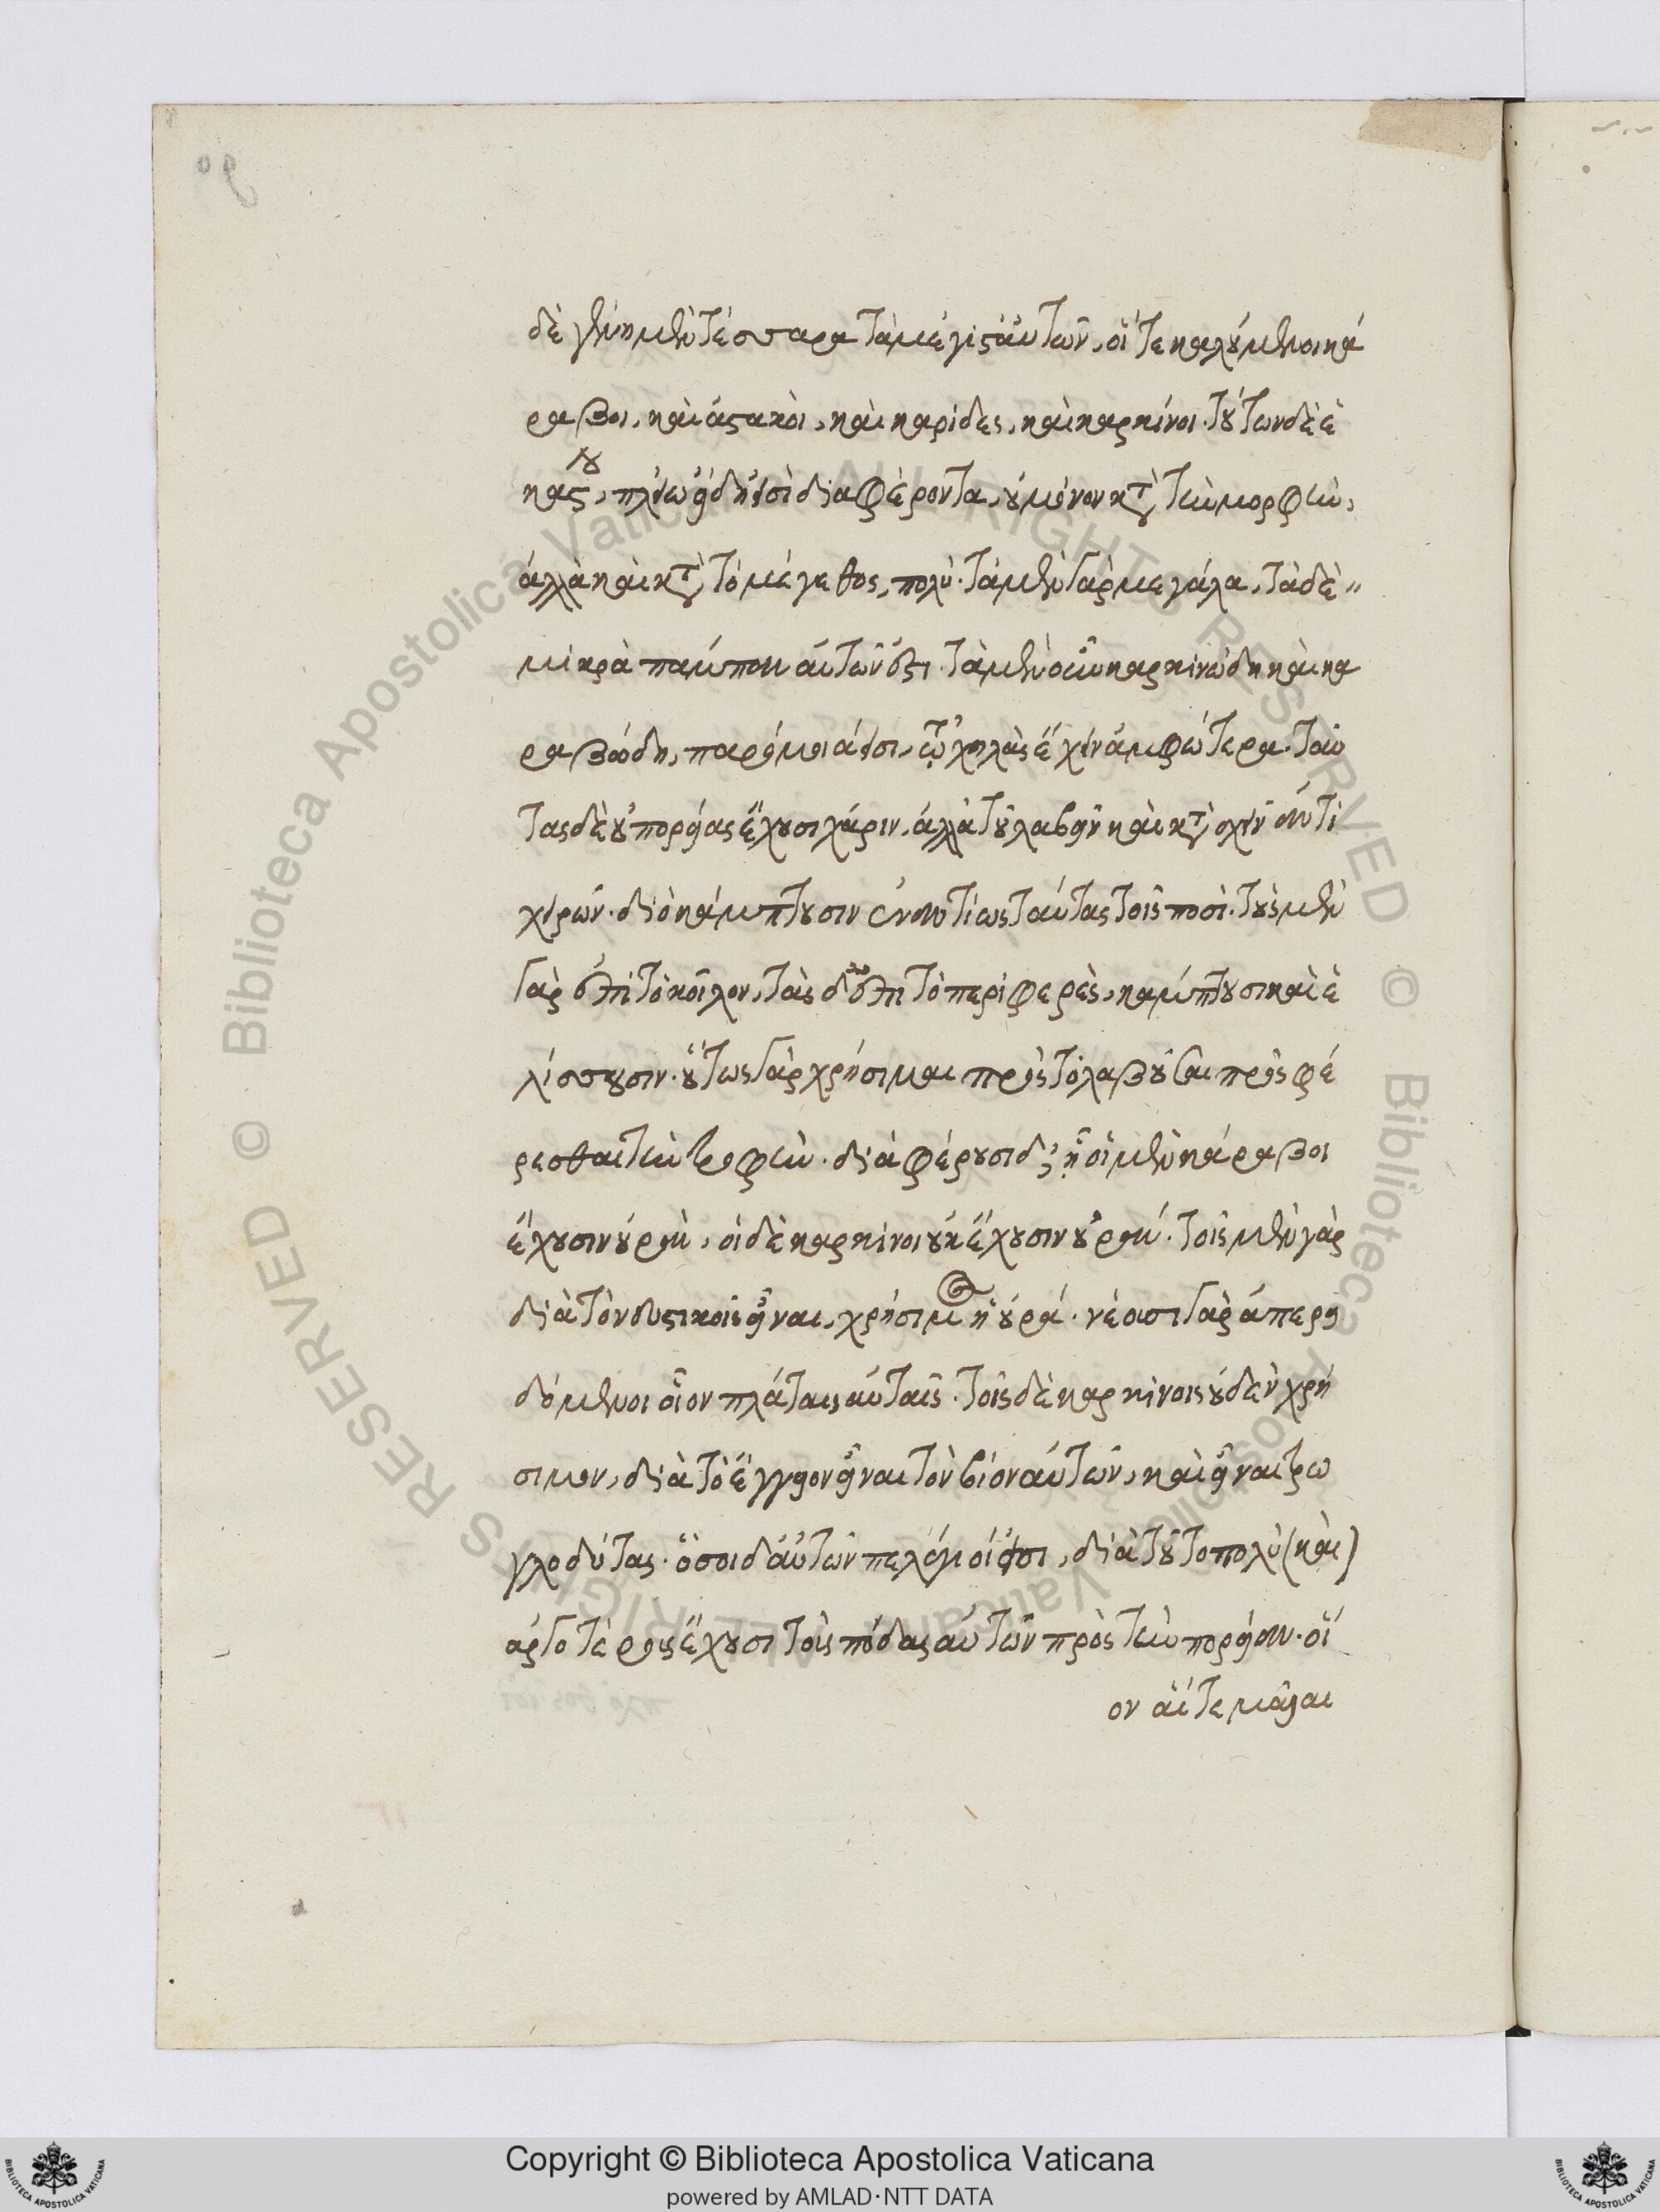 δὲ γένη μὲν τέσσαρα τὰ μέγιστ' αὐτῶν, οἵ τε καλούμενοι κά
ραβοι, καὶ ἀστακοὶ, καὶ καρίδες, καὶ καρκίνοι. τούτων δὲ ἑ
κάστου, πλείω εἴδη εἰσὶ διαφέροντα, οὐ μόνον κατὰ τὴν μορφὴν,
ἀλλὰ καὶ κατὰ τὸ μέγεθος, πολύ. τὰ μὲν γὰρ μεγάλα, τὰ δὲ
μικρὰ πάμπαν αὐτῶν ἐστι. τὰ μὲν οὖν καρκινώδη καὶ κα
ραβώδη, παρόμοιά εἰσι, τῷ χηλὰς ἔχειν ἀμφότερα. ταύ
τας δὲ οὐ πορείας ἔχουσι χάριν, ἀλλὰ τοῦ λαβεῖν καὶ κατασχεῖν ἀντὶ
χειρῶν. διὸ κάμπτουσιν ἐναντίως ταύτας τοῖς ποσί. τοὺς μὲν
γὰρ ἐπὶ τὸ κοῖλον, τὰς δ' ἐπὶ τὸ περιφερὲς, κάμπτουσι καὶ ἑ
λίσσουσιν. οὕτως γὰρ χρήσιμαι πρὸς τὸ λαβοῦσαι προσφέ
ρεσθαι τὴν τροφήν. διαφέρουσι δ', ᾗ οἱ μὲν κάραβοι
ἔχουσιν οὐρὰν, οἱ δὲ καρκίνοι οὐκ ἔχουσιν οὐράν. τοῖς μὲν γὰρ
διὰ τὸ νευστικοῖς εἶναι, χρήσιμος ἡ οὐρά. νέουσι γὰρ ἀπερει
δόμενοι οἷον πλάταις αὐταῖς. τοῖς δὲ καρκίνοις οὐδὲν χρή
σιμον, διὰ τὸ ἔγγειον εἶναι τὸν βίον αὐτῶν, καὶ εἶναι τρω
γλοδύτας. ὅσοι δ' αὐτῶν πελάγιοί εἰσι, διὰ τοῦτο πολὺ (καὶ)
ἀργοτέρους ἔχουσι τοὺς πόδας αὐτῶν πρὸς τὴν πορείαν. οἷ
ον αἵ τε μαῖαι
Copyright © Biblioteca Apostolica Vaticana
powered by AMLAD·NTT DATA